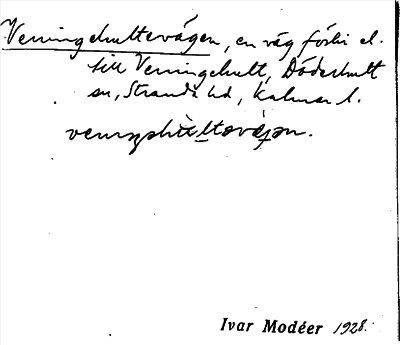 Verningehultevägen, en väg förbi el.
till Verningehult, Döderhult
sn, Stranda hd, Kalmar l.
Ivar Modéer 1928.